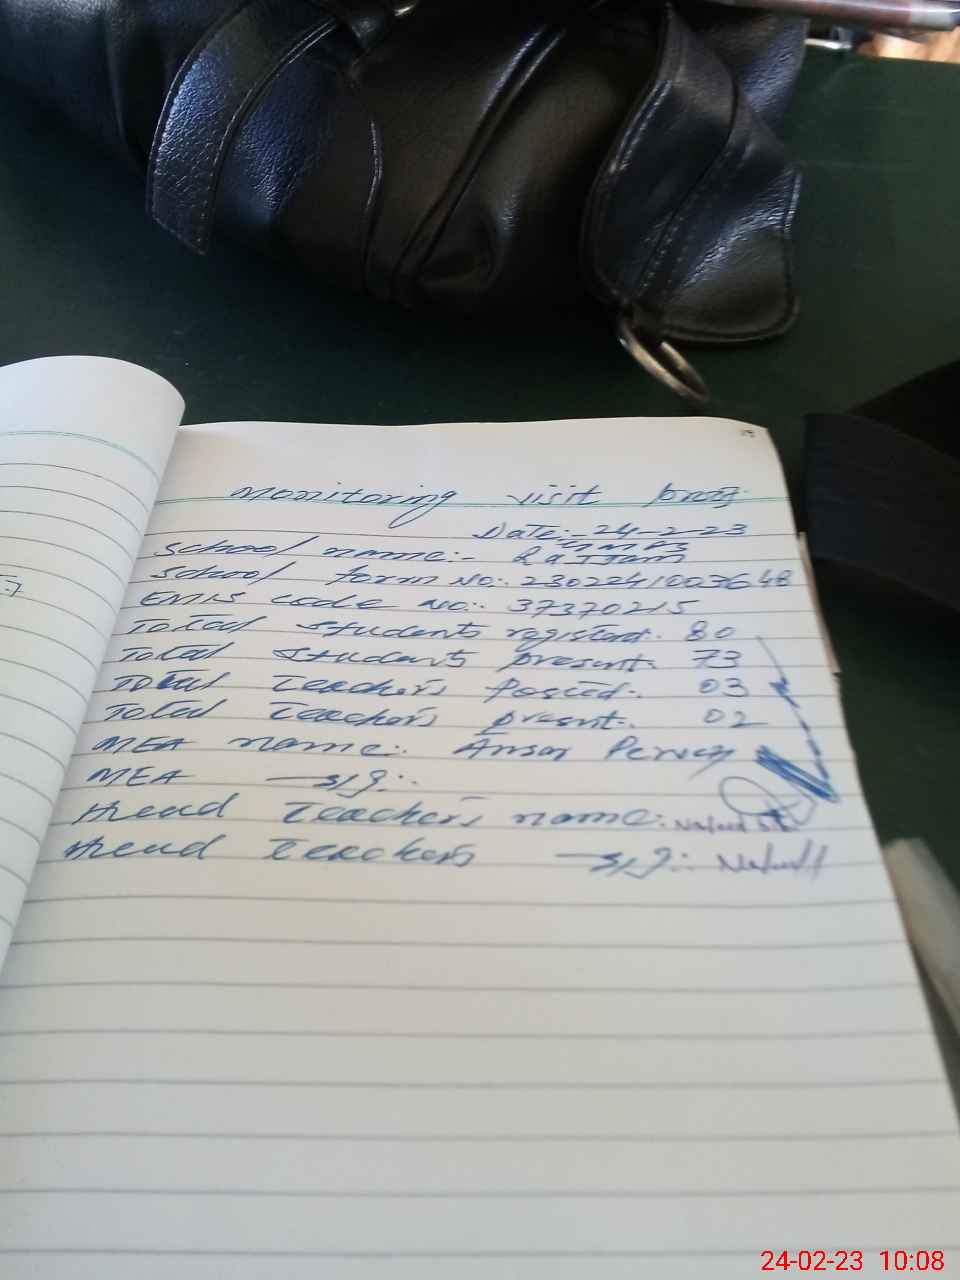 Monitoring visit proof:
Date:- 24-2-23
School name:- GMPS Rajjam
School form No:- 23022410027648
EMIS code No:- 37370215
Total students registerd:- 80
Total students present:- 73
Total Teachers Posted:- 03
Total Teachers present:- 02
MEA name:- Ansar Pervez
MEA sig:-
Head Teachers name:-
Head Teachers sig:-
24-02-23 10:08